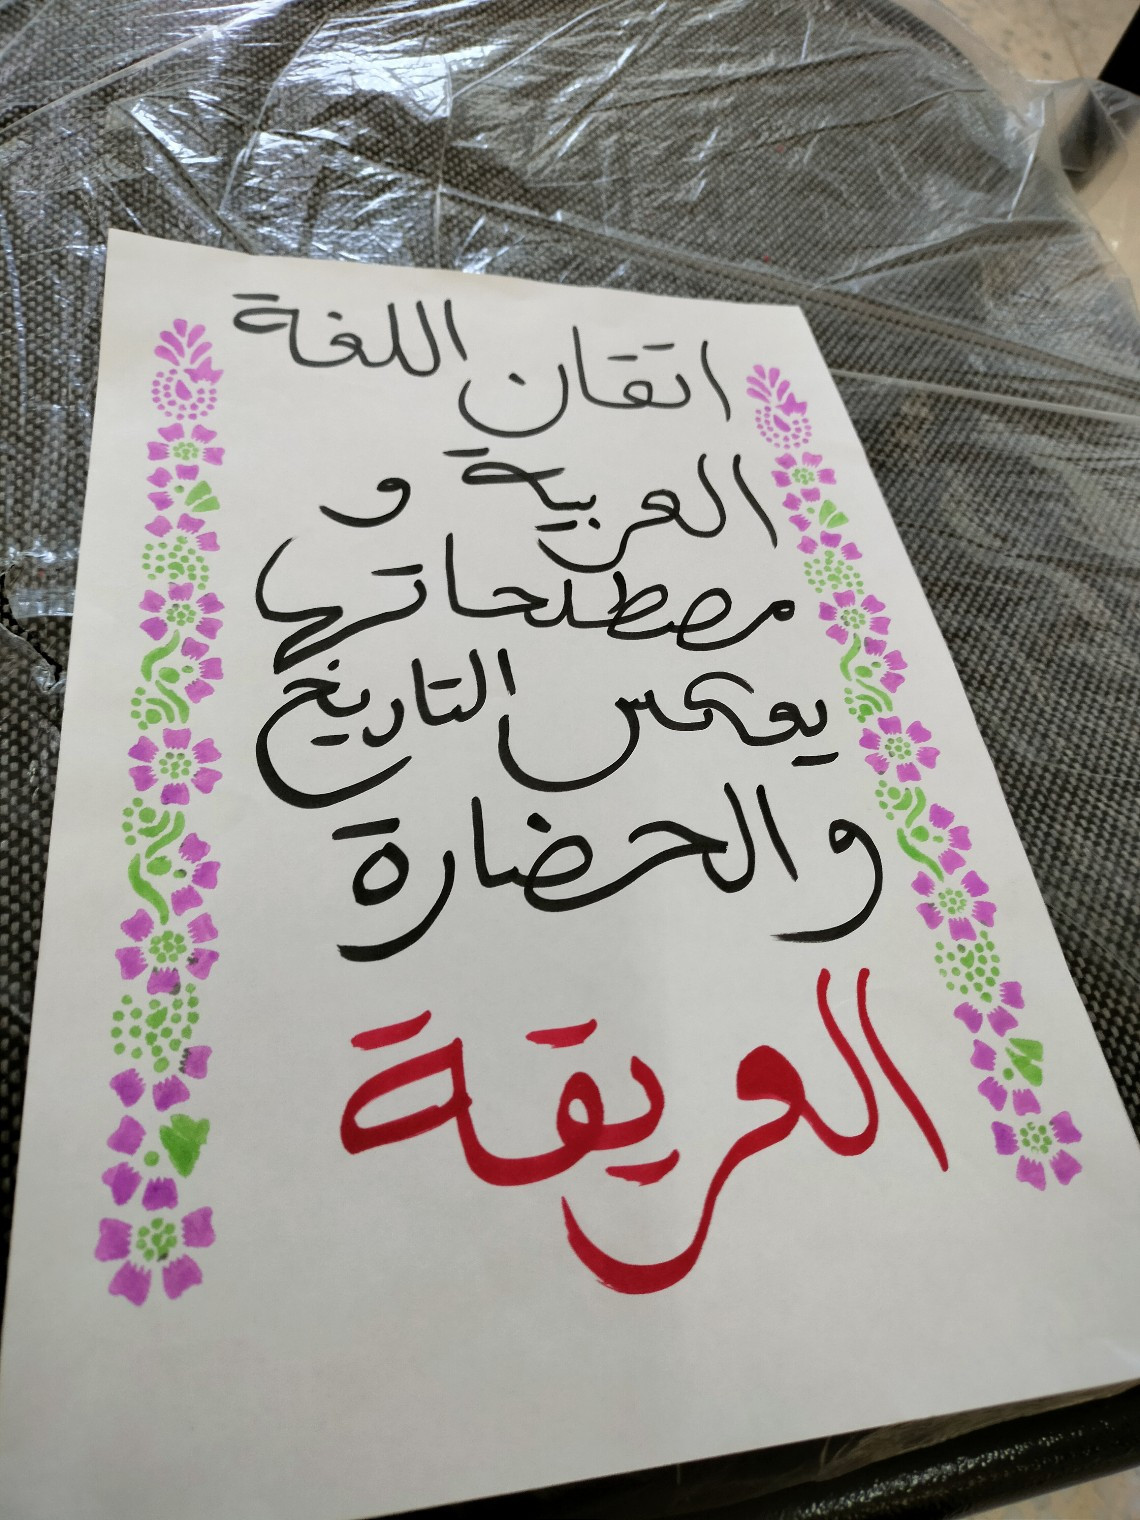 اتقان اللغة
العربية و
مصطلحاتها
يعكس التاريخ
والحضارة
العريقة